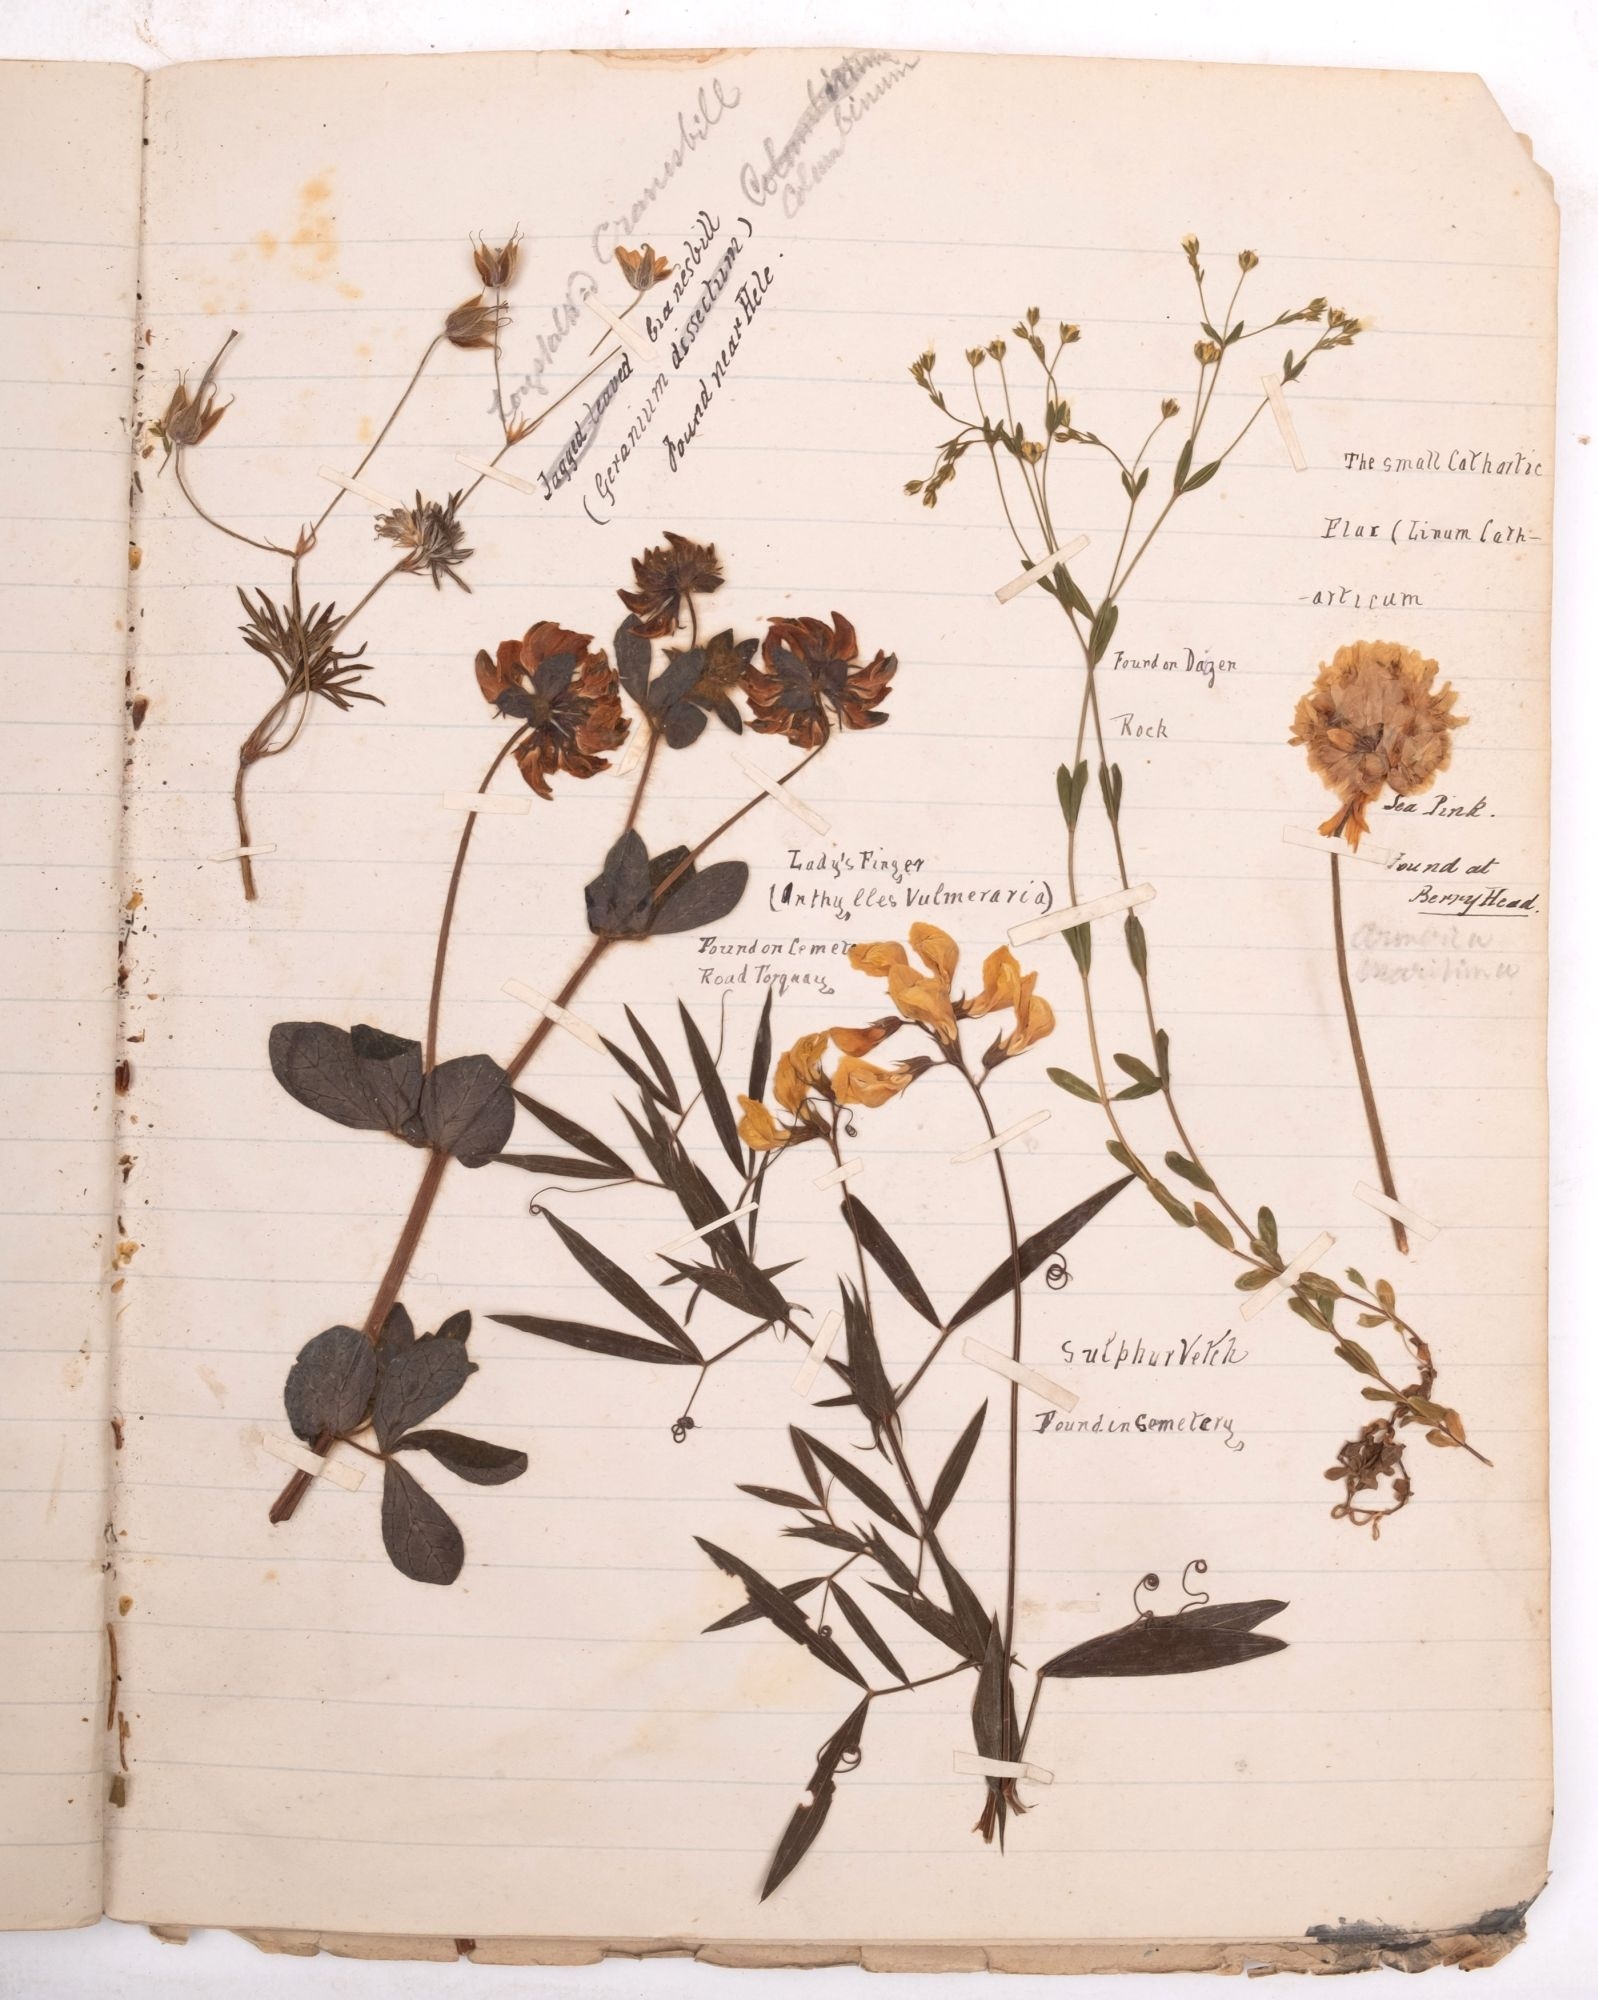 Longstalked Cranesbill
Columbinum
Columbinum
Jagged-leaved Cranesbill
(Geranium dissectum)
Found near Hele.
The small Cathartic
Flax (Linum Cath-
-articum
Found on
Rock
Sea Pink.
Found at
Berry Head.
Armeria
maritima
Lady's Finger
(Anthylles Vulmeraria)
Found on Cemet
Road Torquay
Sulphur Vetch
Found in Cemetery